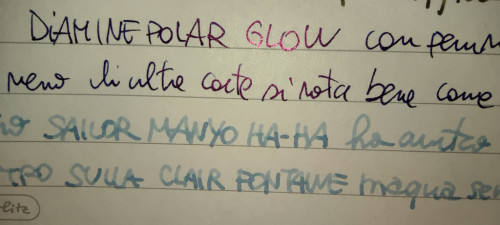 DIAMINE POLAR GLOW con penn
meno di altre carte si nota bene come
SAILOR MANYO HA-HA ho
SULLA CLAIR FONTAINE ma qua se